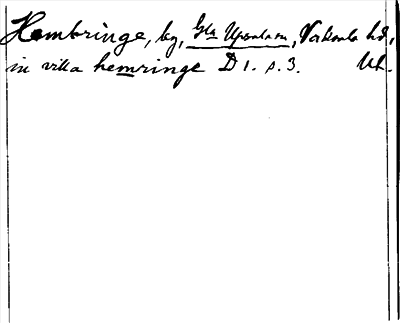 Hembringe, by, Gla Upsala sn, Vaksala hd,
in villa hemringe D 1. s. 3. Ul.